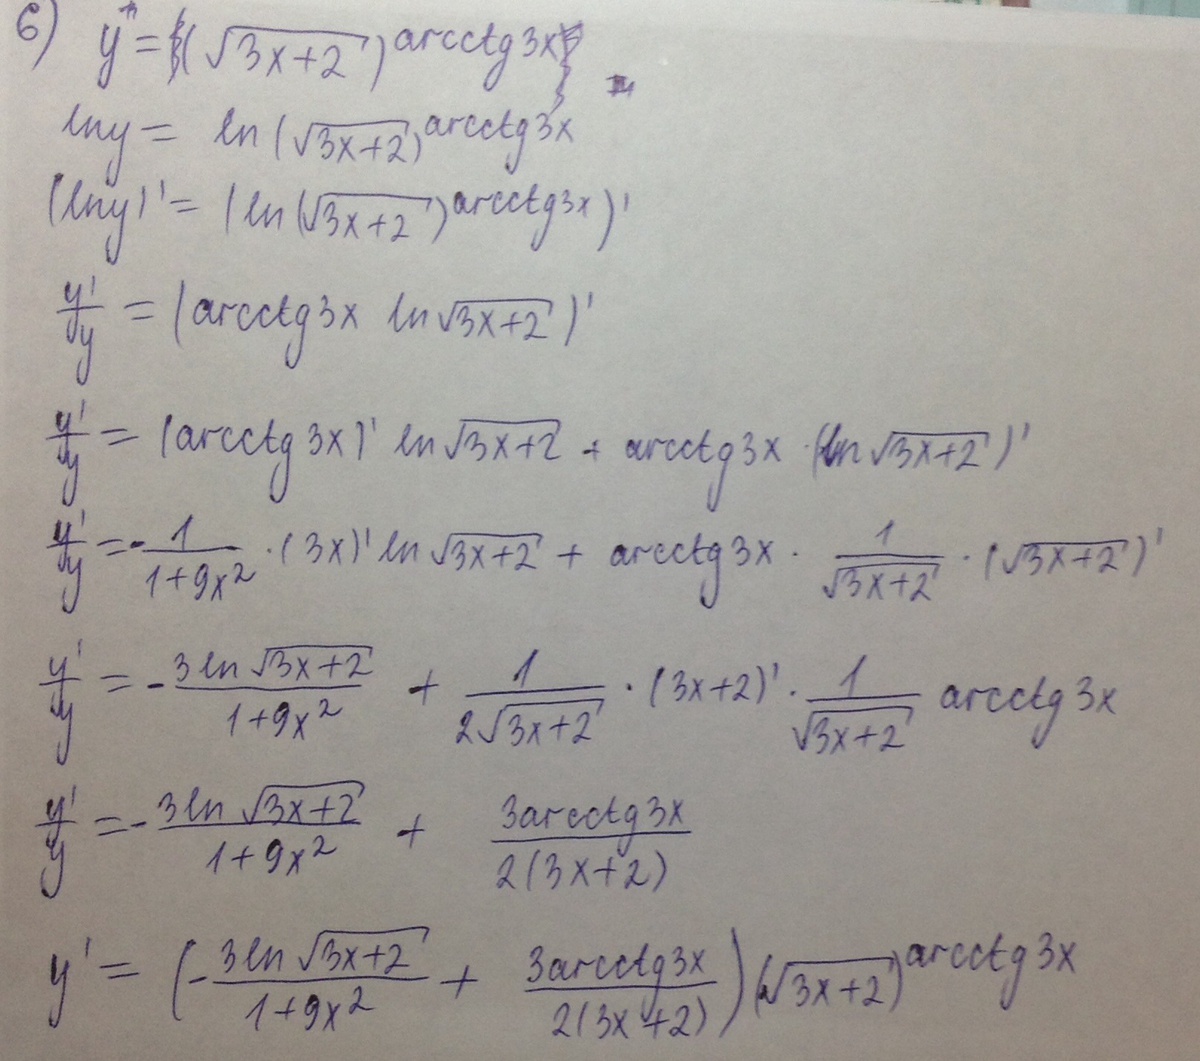 б) y = (√(3x+2))^arcctg3x
lny = ln(√(3x+2))^arcctg3x
(lny)' = (ln(√(3x+2))^arcctg3x)'
y'/y = (arcctg3x ln√(3x+2))'
y'/y = (arcctg3x)' ln√(3x+2) + arcctg3x · (ln√(3x+2))'
y'/y = -1/(1+9x²) · (3x)' ln√(3x+2) + arcctg3x · 1/√(3x+2) · (√(3x+2))'
y'/y = -3ln√(3x+2)/(1+9x²) + 1/(2√(3x+2)) · (3x+2)' · 1/√(3x+2) arcctg3x
y'/y = -3ln√(3x+2)/(1+9x²) + 3arcctg3x/(2(3x+2))
y' = (-3ln√(3x+2)/(1+9x²) + 3arcctg3x/(2(3x+2))) (√(3x+2))^arcctg3x